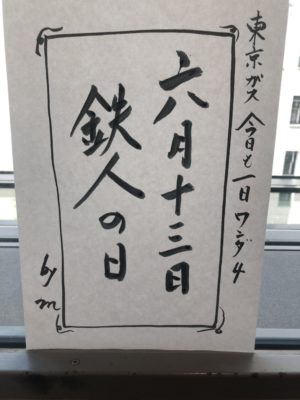 東京ガス 今日も一日ワンダ4
六月十三日
鉄人の日
by m